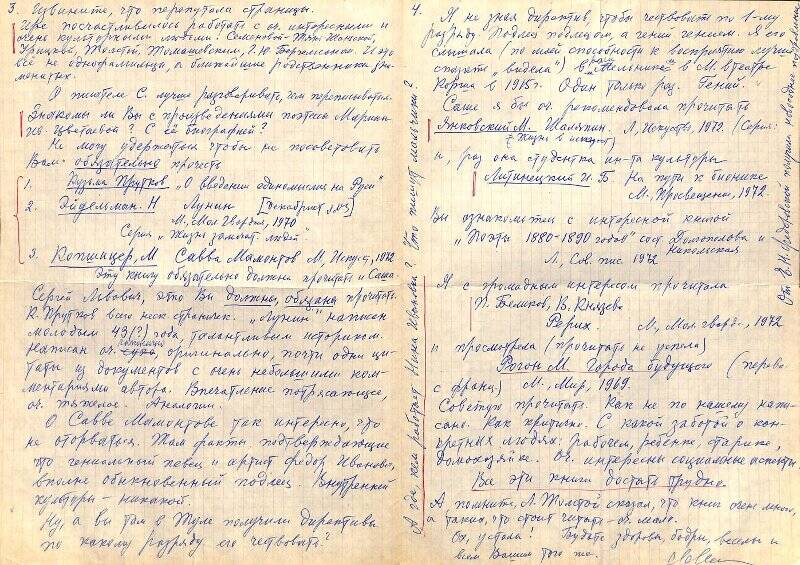 3. Извините, что перепутала страницы.
Мне посчастливилось работать с оч. интересными и
очень культурными людьми: Семеновой-Тян-Шанской,
Урицкой, Толстой, Томашевским,
всё не однофамильцы, а ближайшие родственники зна-
менитых.
О писателе С. лучше разговаривать, чем переписываться.
Знакомы ли Вы с произведениями поэтессы Марины
Ив. Цветаевой? С её биографией?
Не могу удержаться чтобы не посоветовать
Вам обязательно прочесть
1. Кузьма Прутков „О введении единомыслия на Руси"
2. Эйдельман. Н Лунин [Декабрист]
М. Мол. Гвард., 1970
Серия „Жизнь замечат. людей"
3. Копшицер, М Савва Мамонтов М. Искусст, 1972
Эту книгу обязательно должна прочитать и Саша
Сергей Львович, это Вы должны, обязаны прочитать.
К. Прутков всего неск. страничек. „Лунин" написан
молодым 43(?) года, талантливым историком.
Написан оч. оригинально, почти одни ци-
таты из документов с очень небольшими ком-
ментариями автора. Впечатление потрясающее,
оч. тяжелое. Аналогии.
О Савве Мамонтове так интересно, что
не оторваться. Там факты подтверждающие
что гениальный певец и артист Федор Иванович,
вполне обыкновенный подлец. Внутренней
культуры – никакой.
Ну, а вы там в Туле получили директивы
по какому разряду его чествовать?
А где, кем работает Нина Ивановна? Что пишут мальчики?
4. Я не знаю директив, чтобы чествовать по 1-му
разряду. Подлец подлецом, а гений гением. Я его
слышала (по моей способности к восприятию лучше
сказать „видела") в „Мельнике" в М. в театре
Корша в 1915 г. Один только раз. Гений.
Саше я бы оч. рекомендовала прочитать
Янковский М. Шаляпин. Л, Искусство, 1972. (Серия:
Жизнь в искусст)
и, раз она студентка ин-та культуры
Литинецкий И. Б На пути к бионике
М., Просвещение, 1972.
Вы ознакомьтесь с интересной книгой
„Поэты 1880-1890 годов" сост
Л., Сов. пис. 1972
Я с громадным интересом прочитала
П. Беликов, В. Князева
Рерих. М, Мол. гвард., 1972
и просмотрела (прочитать не успела)
Рагон М. Города будущего (перевод
с франц) М., Мир, 1969.
Советую прочитать. Как не по нашему напи-
сано. Как критично. С какой заботой о кон-
кретных людях: рабочем, ребенке, старике,
домохозяйке. Оч. интересны социальные аспекты
Все эти книги достать трудно.
А помните, Л. Толстой сказал, что книг очень много,
а таких, что стоит читать – оч. мало.
Ох, устала! Будьте здоровы, бодры, веселы и
всем Вашим того же.